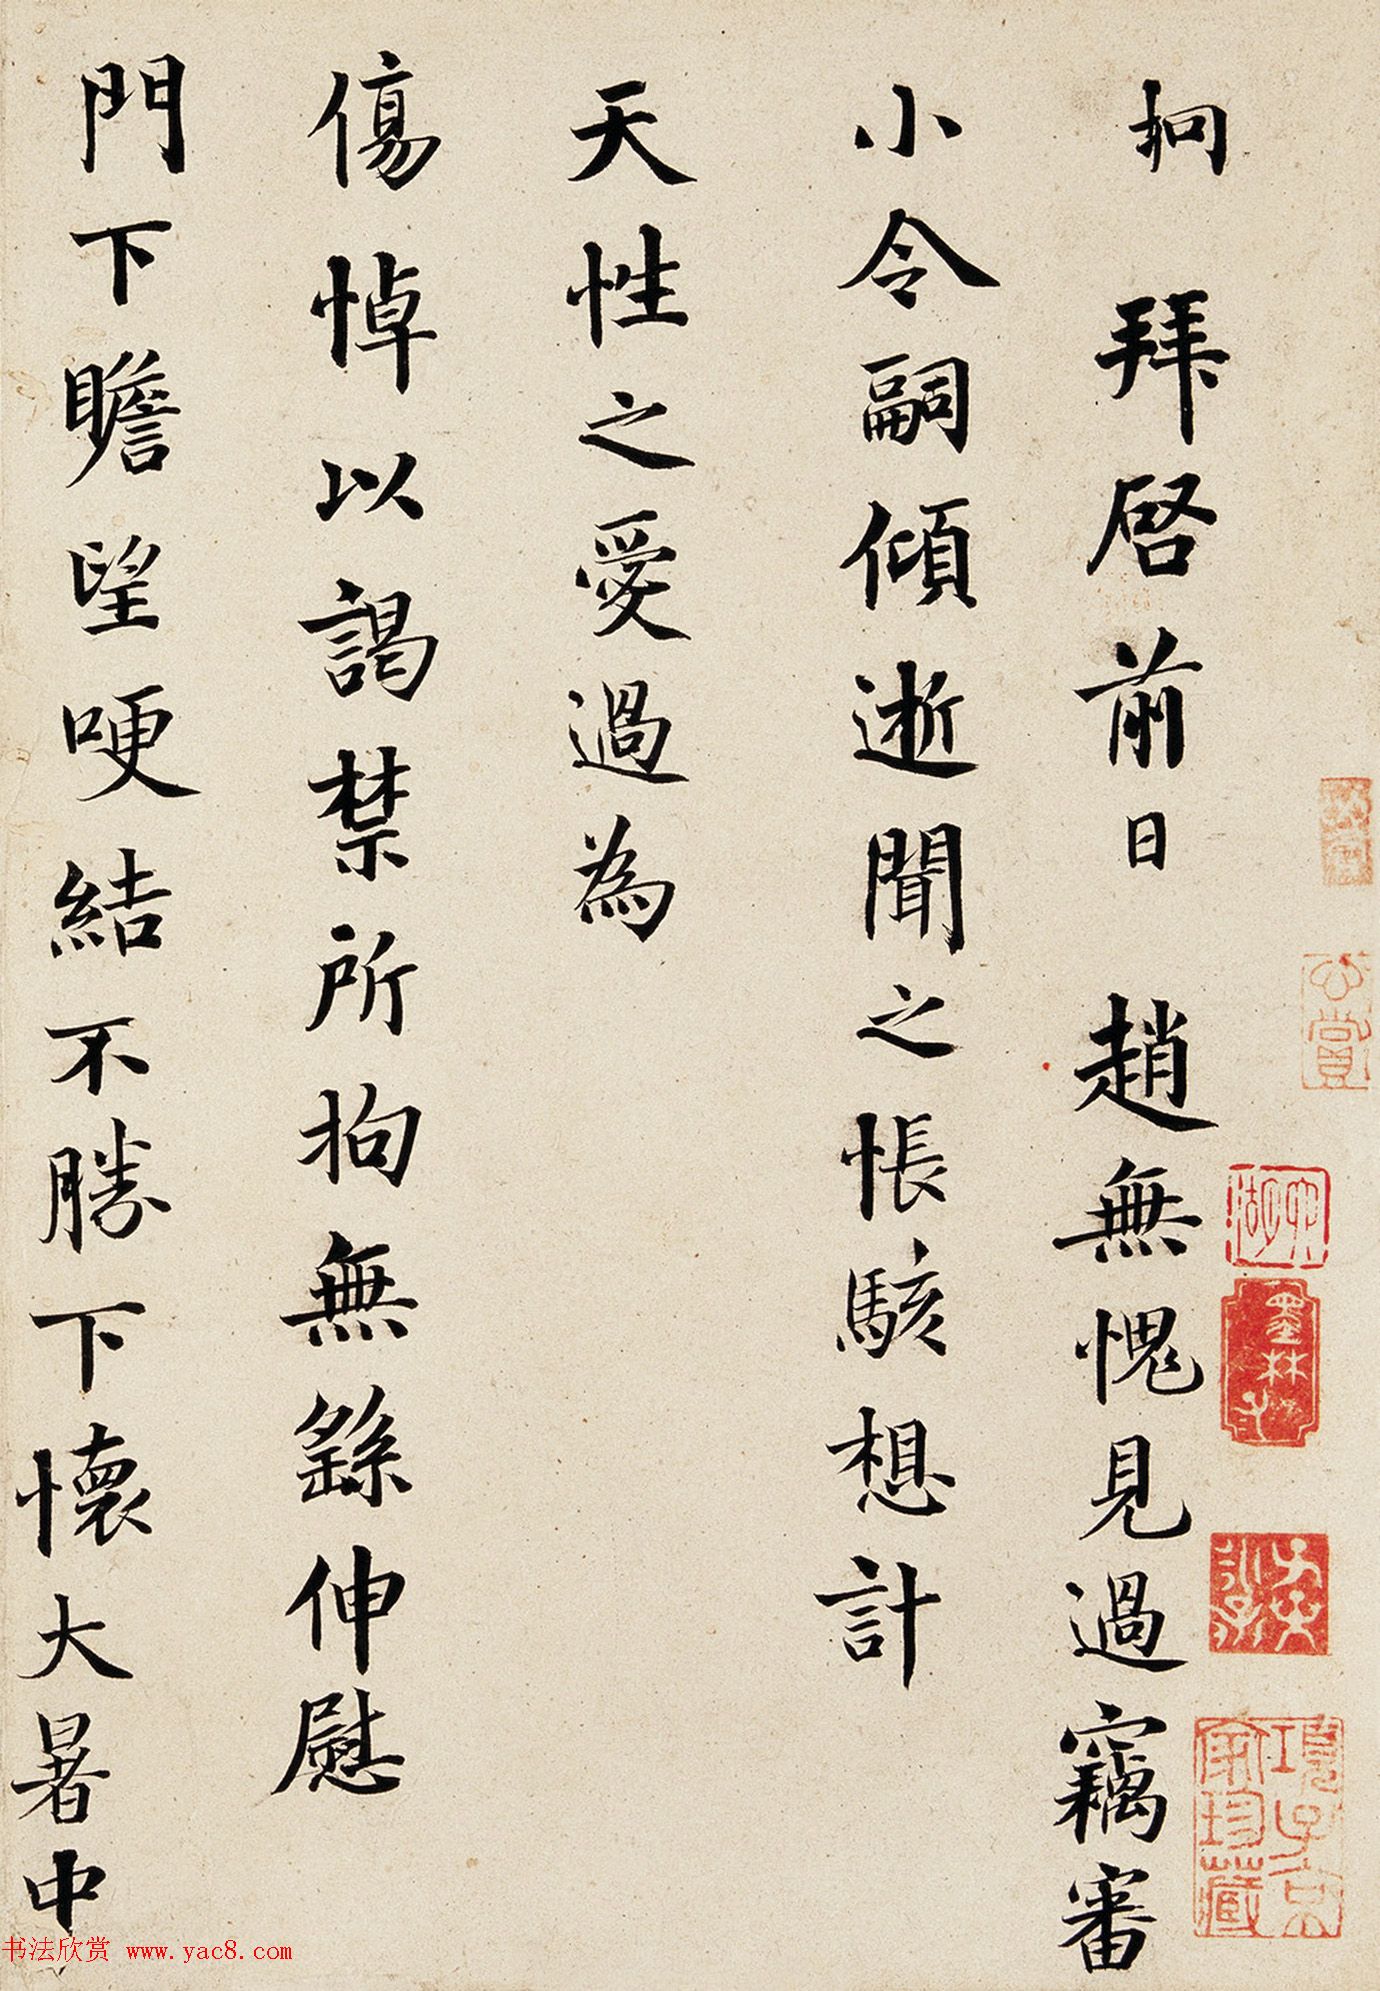 坰拜啓前日 趙無愧見過竊審
小令嗣傾逝聞之悵駭想計
天性之愛過為
傷悼以謁禁所拘無繇伸慰
門下瞻望哽結不勝下懷大暑中
心賞
墨林
子孫永
項子京家珍藏
书法欣赏 www.yac8.com